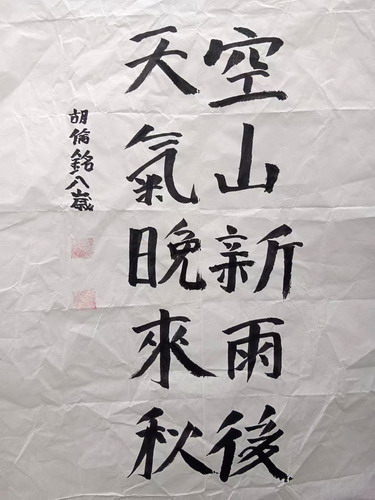 空山新雨後
天氣晚來秋
胡倫銘八歲